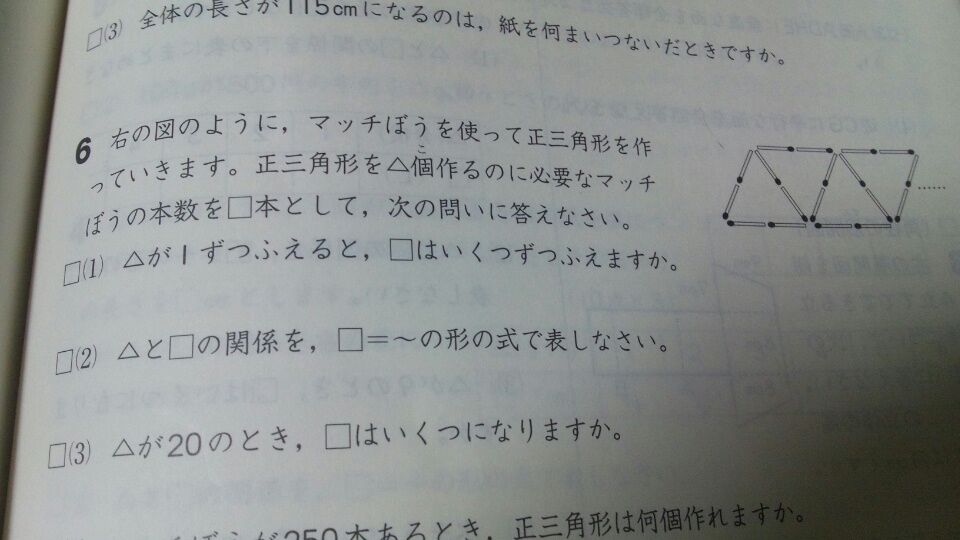 □(3) 全体の長さが115cmになるのは，紙を何まいつないだときですか。
6 右の図のように，マッチぼうを使って正三角形を作
っていきます。正三角形を△個作るのに必要なマッチ
こ
ぼうの本数を□本として，次の問いに答えなさい。
□(1) △が1ずつふえると，□はいくつずつふえますか。
□(2) △と□の関係を，□＝～の形の式で表しなさい。
□(3) △が20のとき，□はいくつになりますか。
ぼうが250本あるとき，正三角形は何個作れますか。